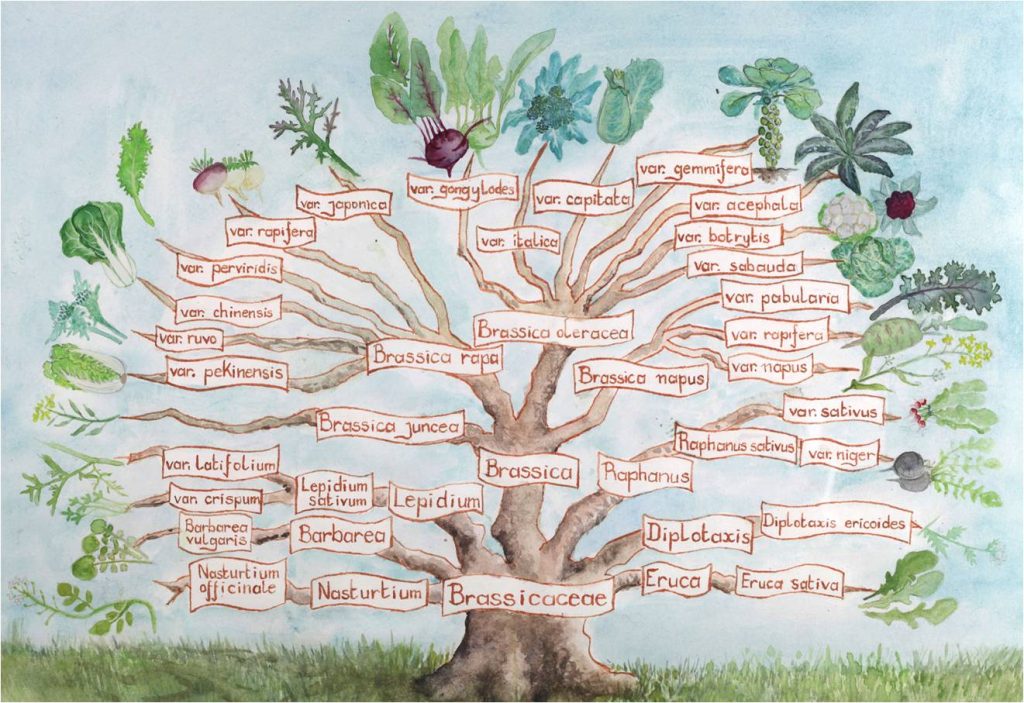 var. gemmifera
var. gongylodes
var. capitata
var. japonica
var. acephala
var. rapifera
var. italica
var. botrytis
var. perviridis
var. sabauda
var. pabularia
var. chinensis
Brassica oleracea
var. rapifera
var. ruvo
Brassica rapa
var. napus
var. pekinensis
Brassica napus
var. sativus
Brassica juncea
Raphanus sativus
var. niger
var. latifolium
Brassica
Raphanus
Lepidium
sativum
Lepidium
var. crispum
Barbarea
vulgaris
Barbarea
Diplotaxis
Diplotaxis ericoides
Nasturtium
officinale
Nasturtium
Brassicaceae
Eruca
Eruca sativa